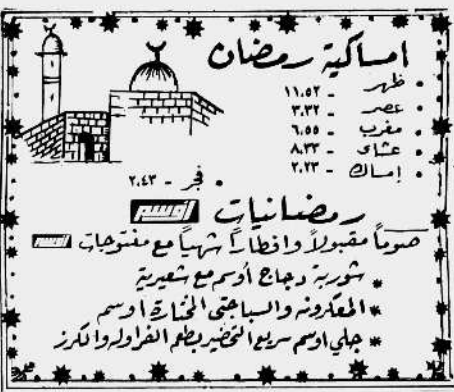 امساكية رمضان
• ظهر - ١١،٥٢
• عصر - ٣،٣٢
• مغرب - ٦،٥٥
• عشاء - ٨،٣٣
• إمساك - ٢،٢٣
• فجر - ٢،٤٣
رمضانيات أوسم
صوماً مقبولاً وافطاراً شهياً مع منتوجات أوسم
* شوربة دجاج أوسم مع شعيرية
* المعكرونه والسباجتي المختارة اوسم
* جلي اوسم سريع التحضير بطعم الفراوله والكرز